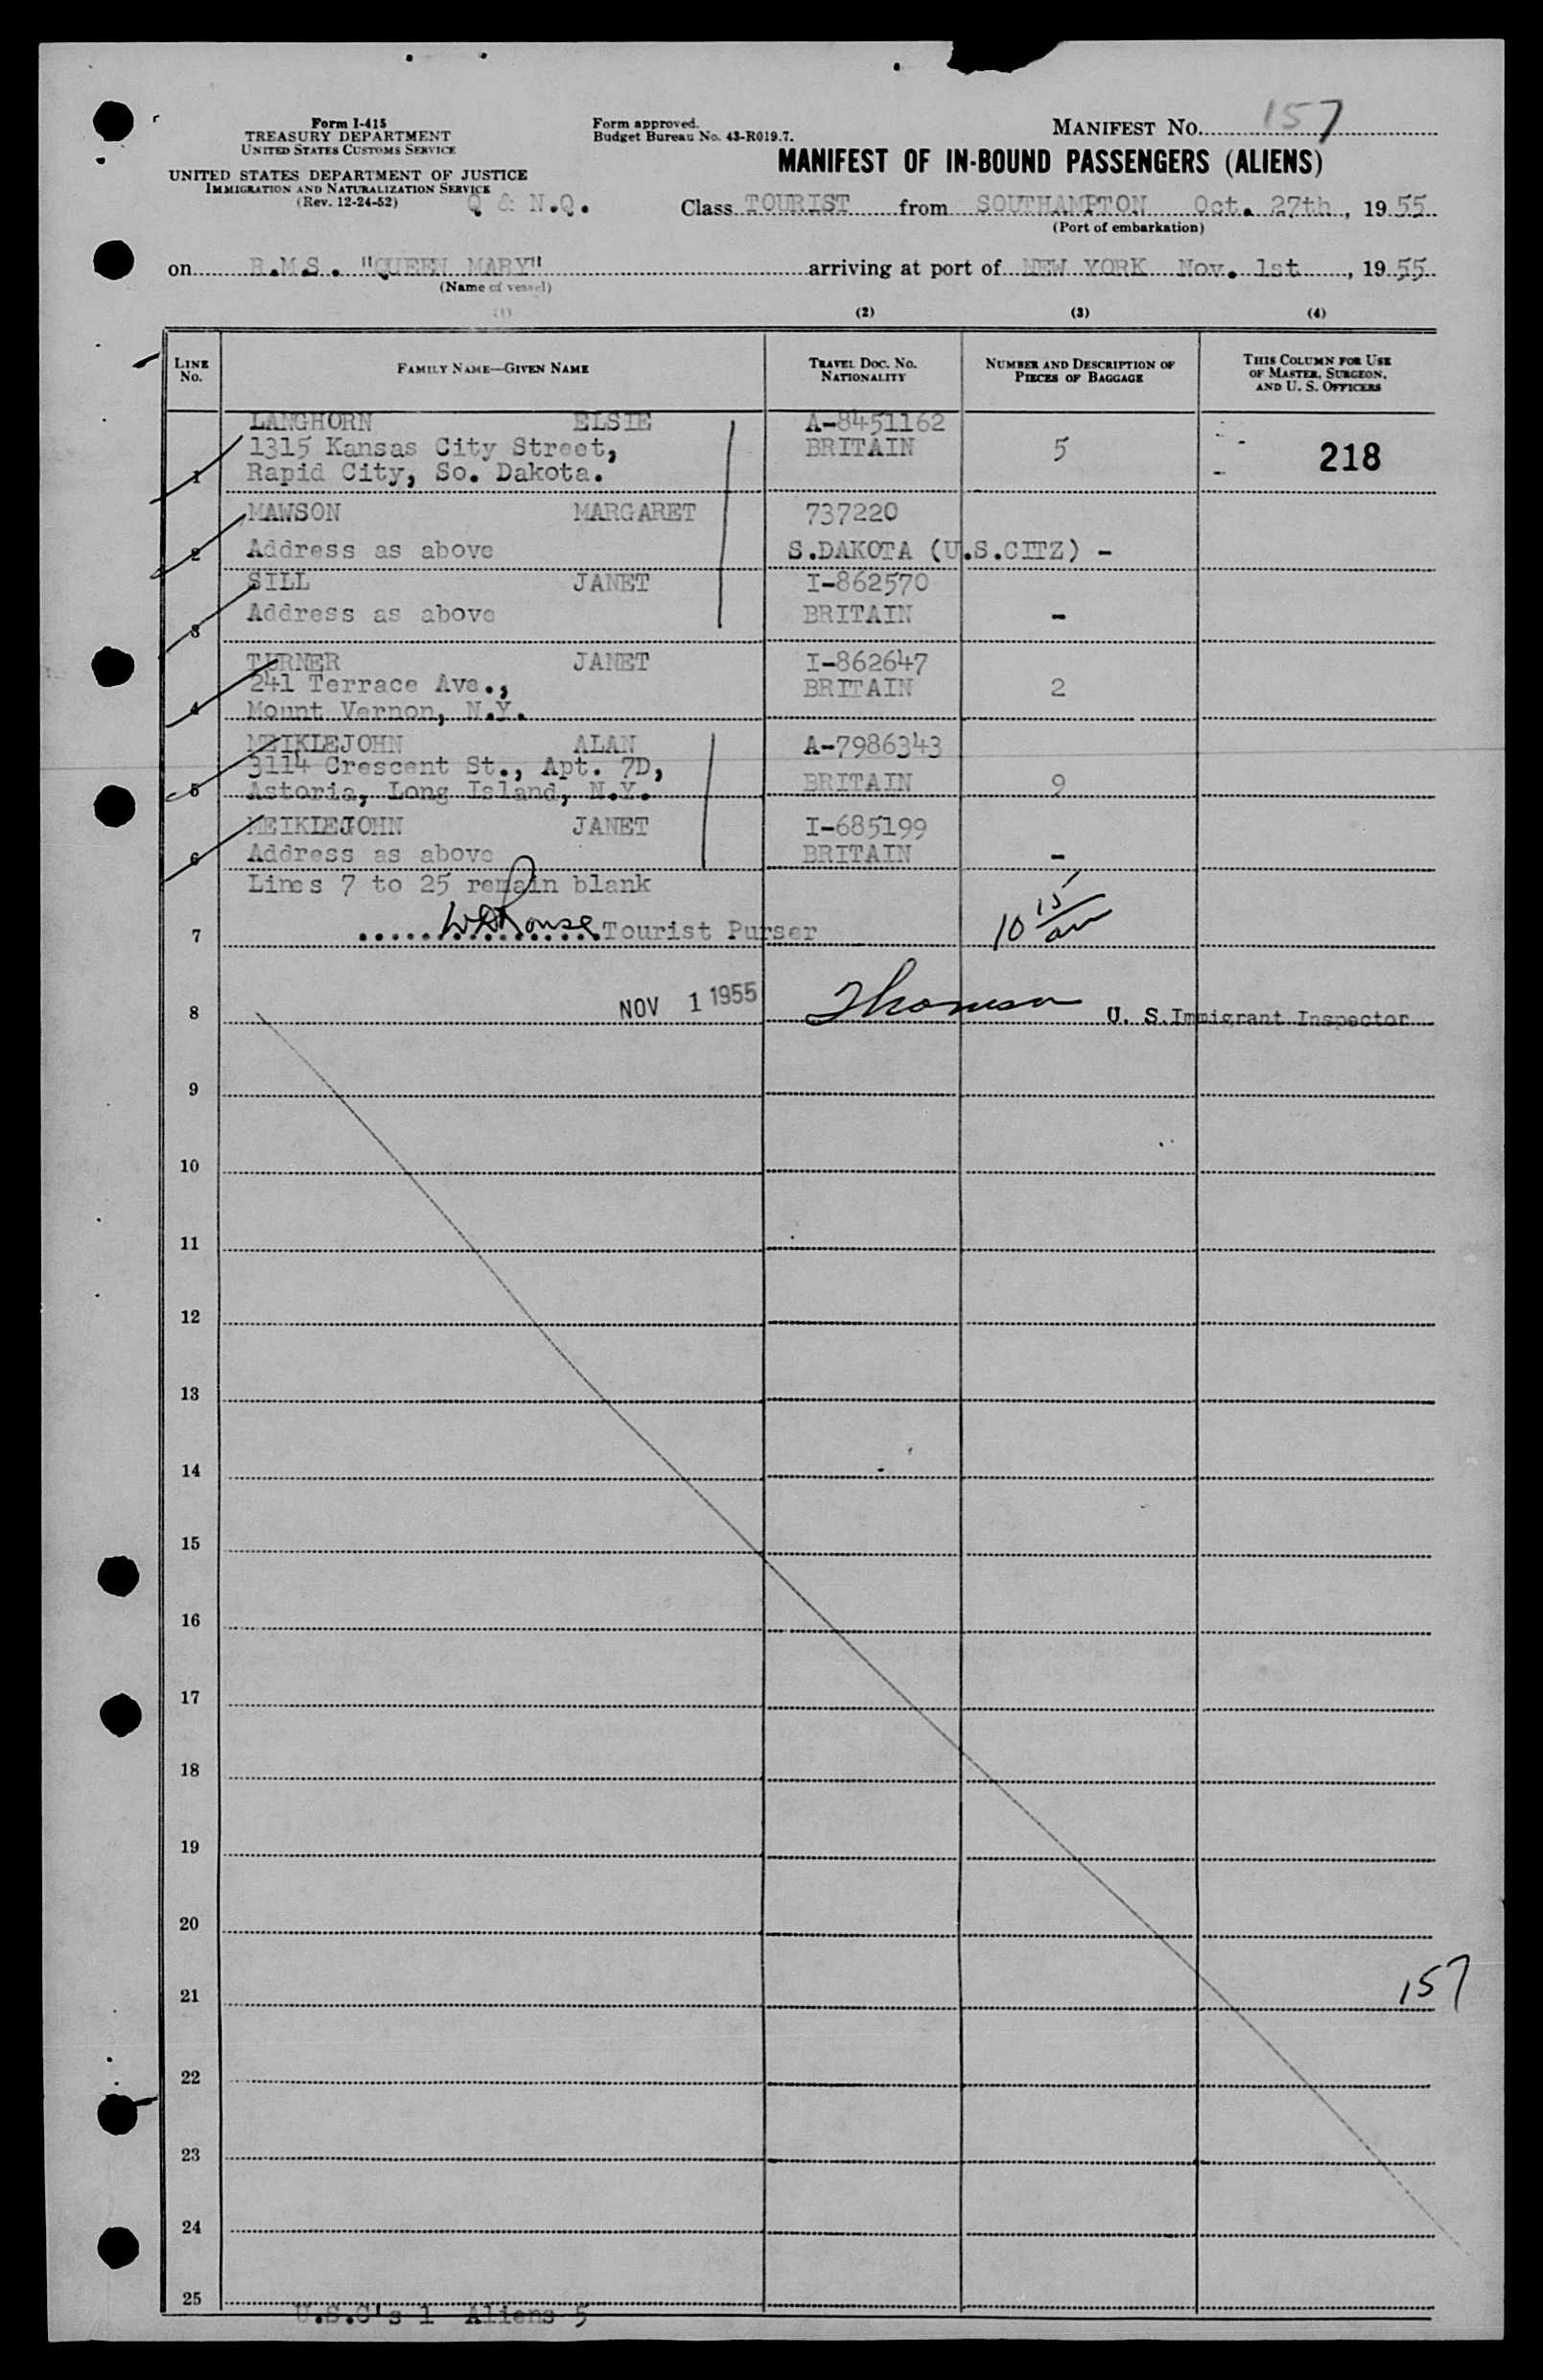 Form I-415
TREASURY DEPARTMENT
UNITED STATES CUSTOMS SERVICE
UNITED STATES DEPARTMENT OF JUSTICE
IMMIGRATION AND NATURALIZATION SERVICE
(Rev. 12-24-52)
Q & N.Q.
Form approved.
Budget Bureau No. 43-R019.7.
MANIFEST NO. 157
MANIFEST OF IN-BOUND PASSENGERS (ALIENS)
Class TOURIST from SOUTHAMPTON Oct. 27th, 1955
(Port of embarkation)
on R.M.S. "QUEEN MARY" arriving at port of NEW YORK Nov. 1st, 1955
(Name of vessel)
(1) (2) (3) (4)
LINE NO. FAMILY NAME—GIVEN NAME TRAVEL DOC. NO. NATIONALITY NUMBER AND DESCRIPTION OF PIECES OF BAGGAGE THIS COLUMN FOR USE OF MASTER, SURGEON, AND U. S. OFFICERS
LANGHORN ELSIE A-8451162
1315 Kansas City Street, BRITAIN 5 218
1 Rapid City, So. Dakota.
MAWSON MARGARET 737220
2 Address as above S.DAKOTA (U.S.CITZ) -
SILL JANET I-862570
3 Address as above BRITAIN -
TURNER JANET I-862647
241 Terrace Ave., BRITAIN 2
4 Mount Vernon, N.Y.
MEIKLEJOHN ALAN A-7986343
3114 Crescent St., Apt. 7D,
5 Astoria, Long Island, N.Y. BRITAIN 9
MEIKLEJOHN JANET I-685199
6 Address as above BRITAIN -
Lines 7 to 25 remain blank
7 W Rouse Tourist Purser 10 15/am
8 NOV 1 1955 Thomson U. S. Immigrant Inspector
9
10
11
12
13
14
15
16
17
18
19
20
21 157
22
23
24
25
U.S.C's 1 Aliens 5